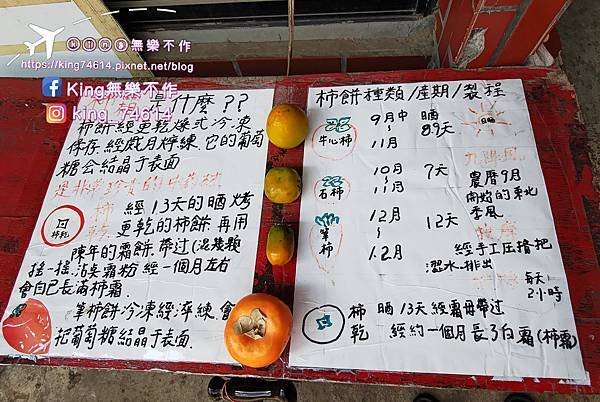 king無樂不作
https://king74614.pixnet.net/blog
King無樂不作
king_74614
是什麼??
柿餅經更乾燥式冷凍
保存.經戲月焠練.它的葡萄
糖会結晶于表面
柿乾
經13天的晒烤
更乾的柿餅.再用
陳年的霜餅.帶过(混幾顆
搖一搖.沾妾霜粉 經一個月左右
會自己長滿柿霜
筆柿餅冷凍經淬練.會
把葡萄糖結晶于表面.
柿餅種類/產期/製程
牛心柿
9月中
11月
晒
8.9天
九降風
石柿
10月
11月
7天
農曆9月
開始的東北
季風
筆柿
12月
1.2月
12天
經手工压揩把
澀水.排出
每天
2小時
柿乾
晒13天經霜母帶过
經約一個月長了白霜(柿霜)